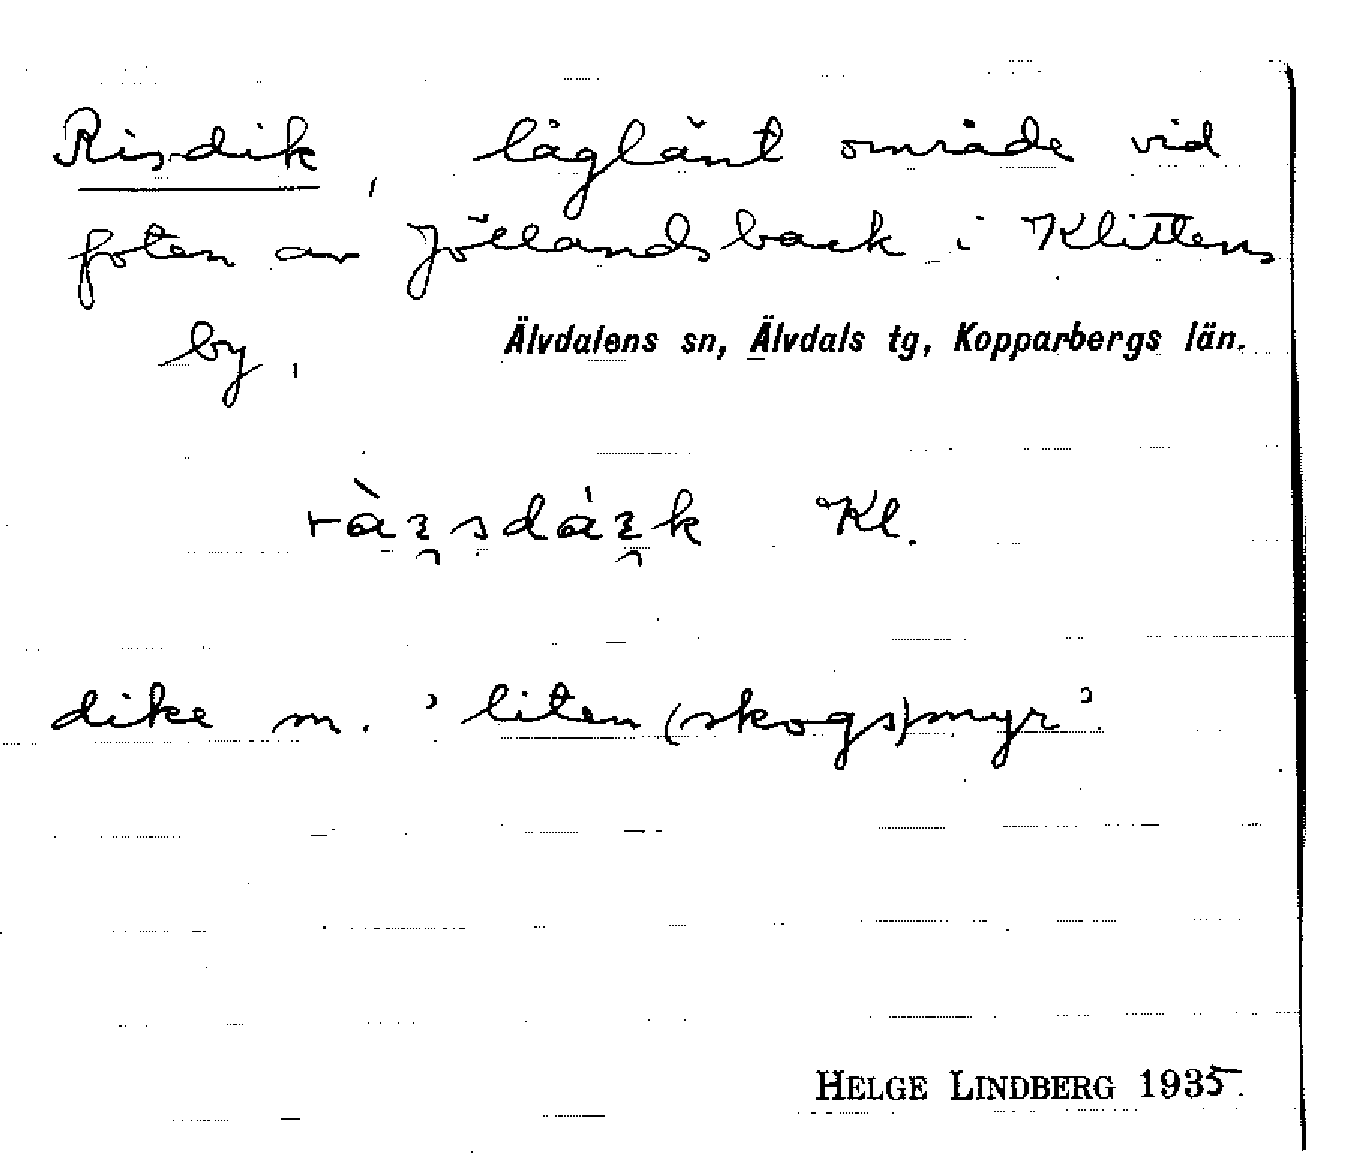 Risdik, låglänt område vid
foten av Jöllandsback i Klittens
by.
Älvdalens sn, Älvdals tg, Kopparbergs län.
ràı̯sdáı̯k Kl.
dike m. ’liten (skogs)myr’.
HELGE LINDBERG 1935.